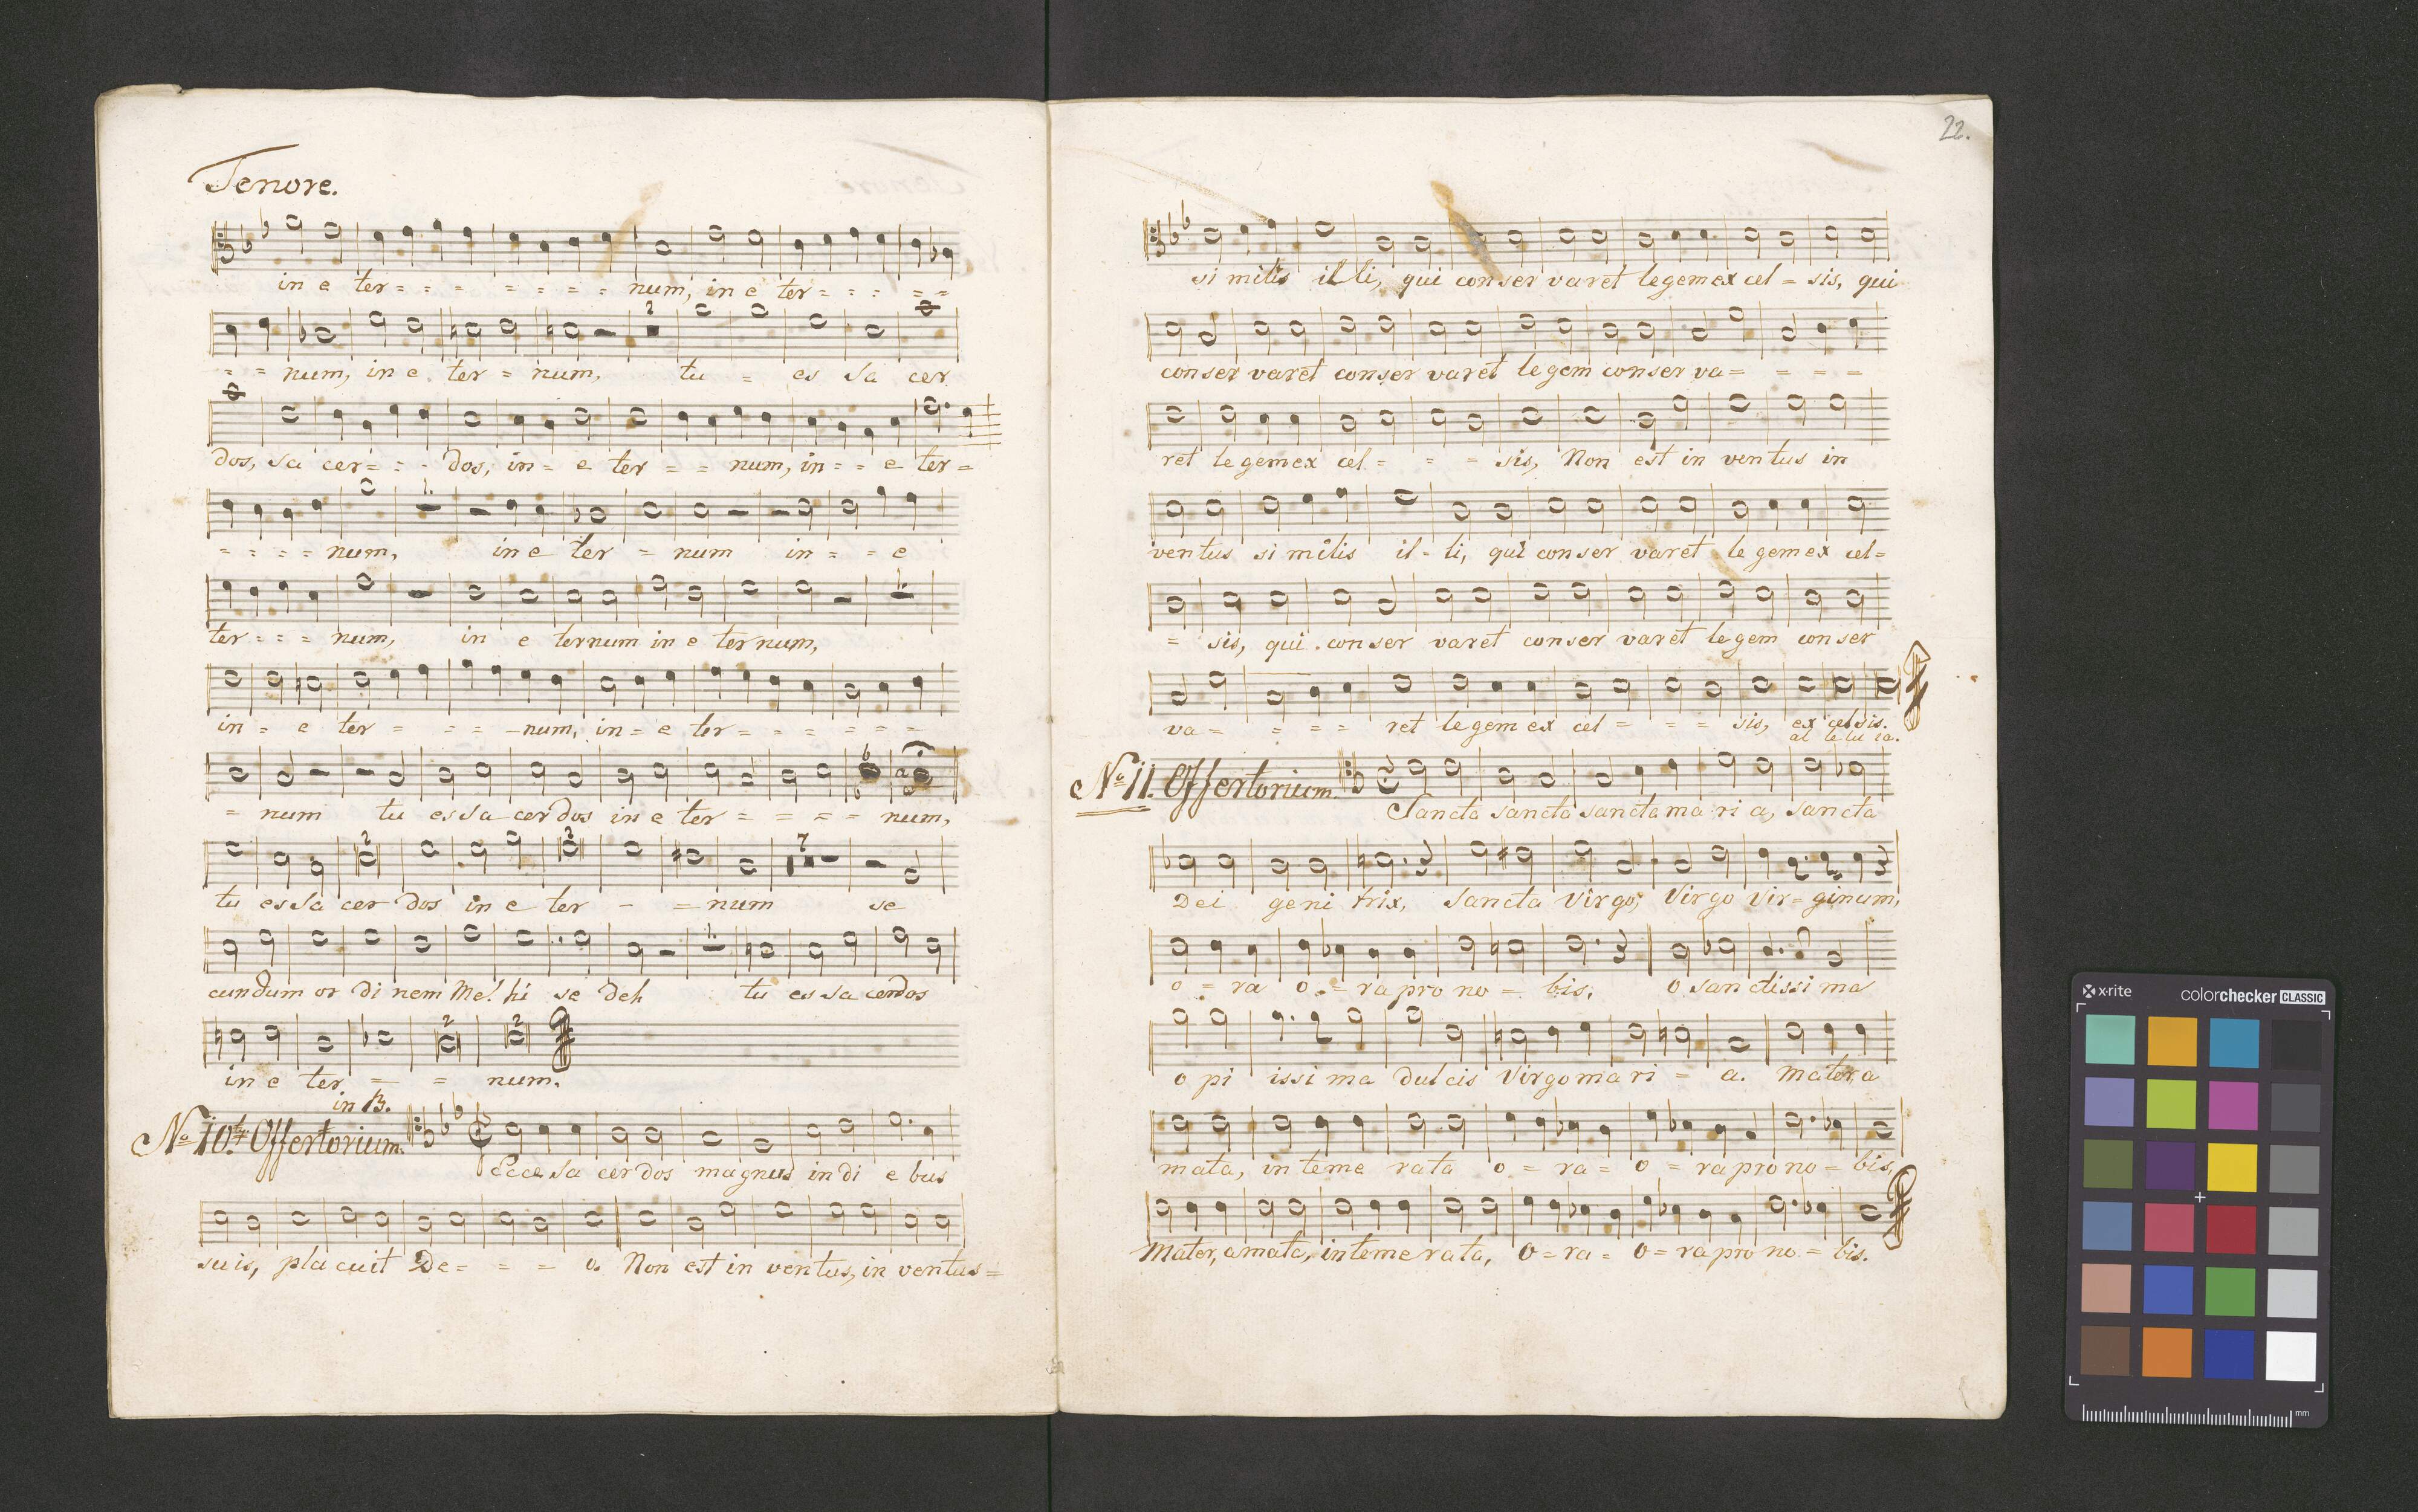 Tenore.
in e ter = = = = = = = num, in e ter = = = = =
= = num, in e ter = num, tu = es sa cer
dos, sa cer = = - dos, in = e ter = = num, in = = e ter =
= = = = num, in e ter = num in = = e
ter = = = num, in e ternum in e ter num,
in = e ter = = = - num, in = e ter = = = = = =
= num tu es sa cer dos in e ter = = = = num,
2 2 7
tu es sa cer dos in e ter - = num se
cundum or di nem Mel hi se deh tu es sa cerdos
2 2
in e ter = = num.
in B.
No 10. Offertorium.
Ecce sa cer dos magnus in di e bus
suis, pla cuit De = = = o. Non est in ventus, in ventus =
22.
si milis il li, qui con ser varet legem ex cel = sis, qui
con ser varet con ser varet le gem con ser va = = = =
ret le gem ex cel = = = sis, Non est in ven tus in
ven tus si milis il - li, qui con ser varet le gem ex cel =
= sis, qui con ser varet con ser varet le gem con ser
va = = = = ret le gem ex cel = = = sis, ex cel sis.
al le lu ia.
No 11. Offertorium.
Sancta sancta sancta ma ri a, sancta
Dei geni trix, sancta Virgo, Virgo Vir = ginum,
o = ra o = ra pro no = bis, o sanctissi ma
o pi issi ma dulcis Virgo ma ri = a. Mater a
mata, in teme rata o = ra = o = ra pro no = bis,
Mater, amata, in teme rata, o = ra = o = ra pro no = bis.
x·rite
colorchecker CLASSIC
mm